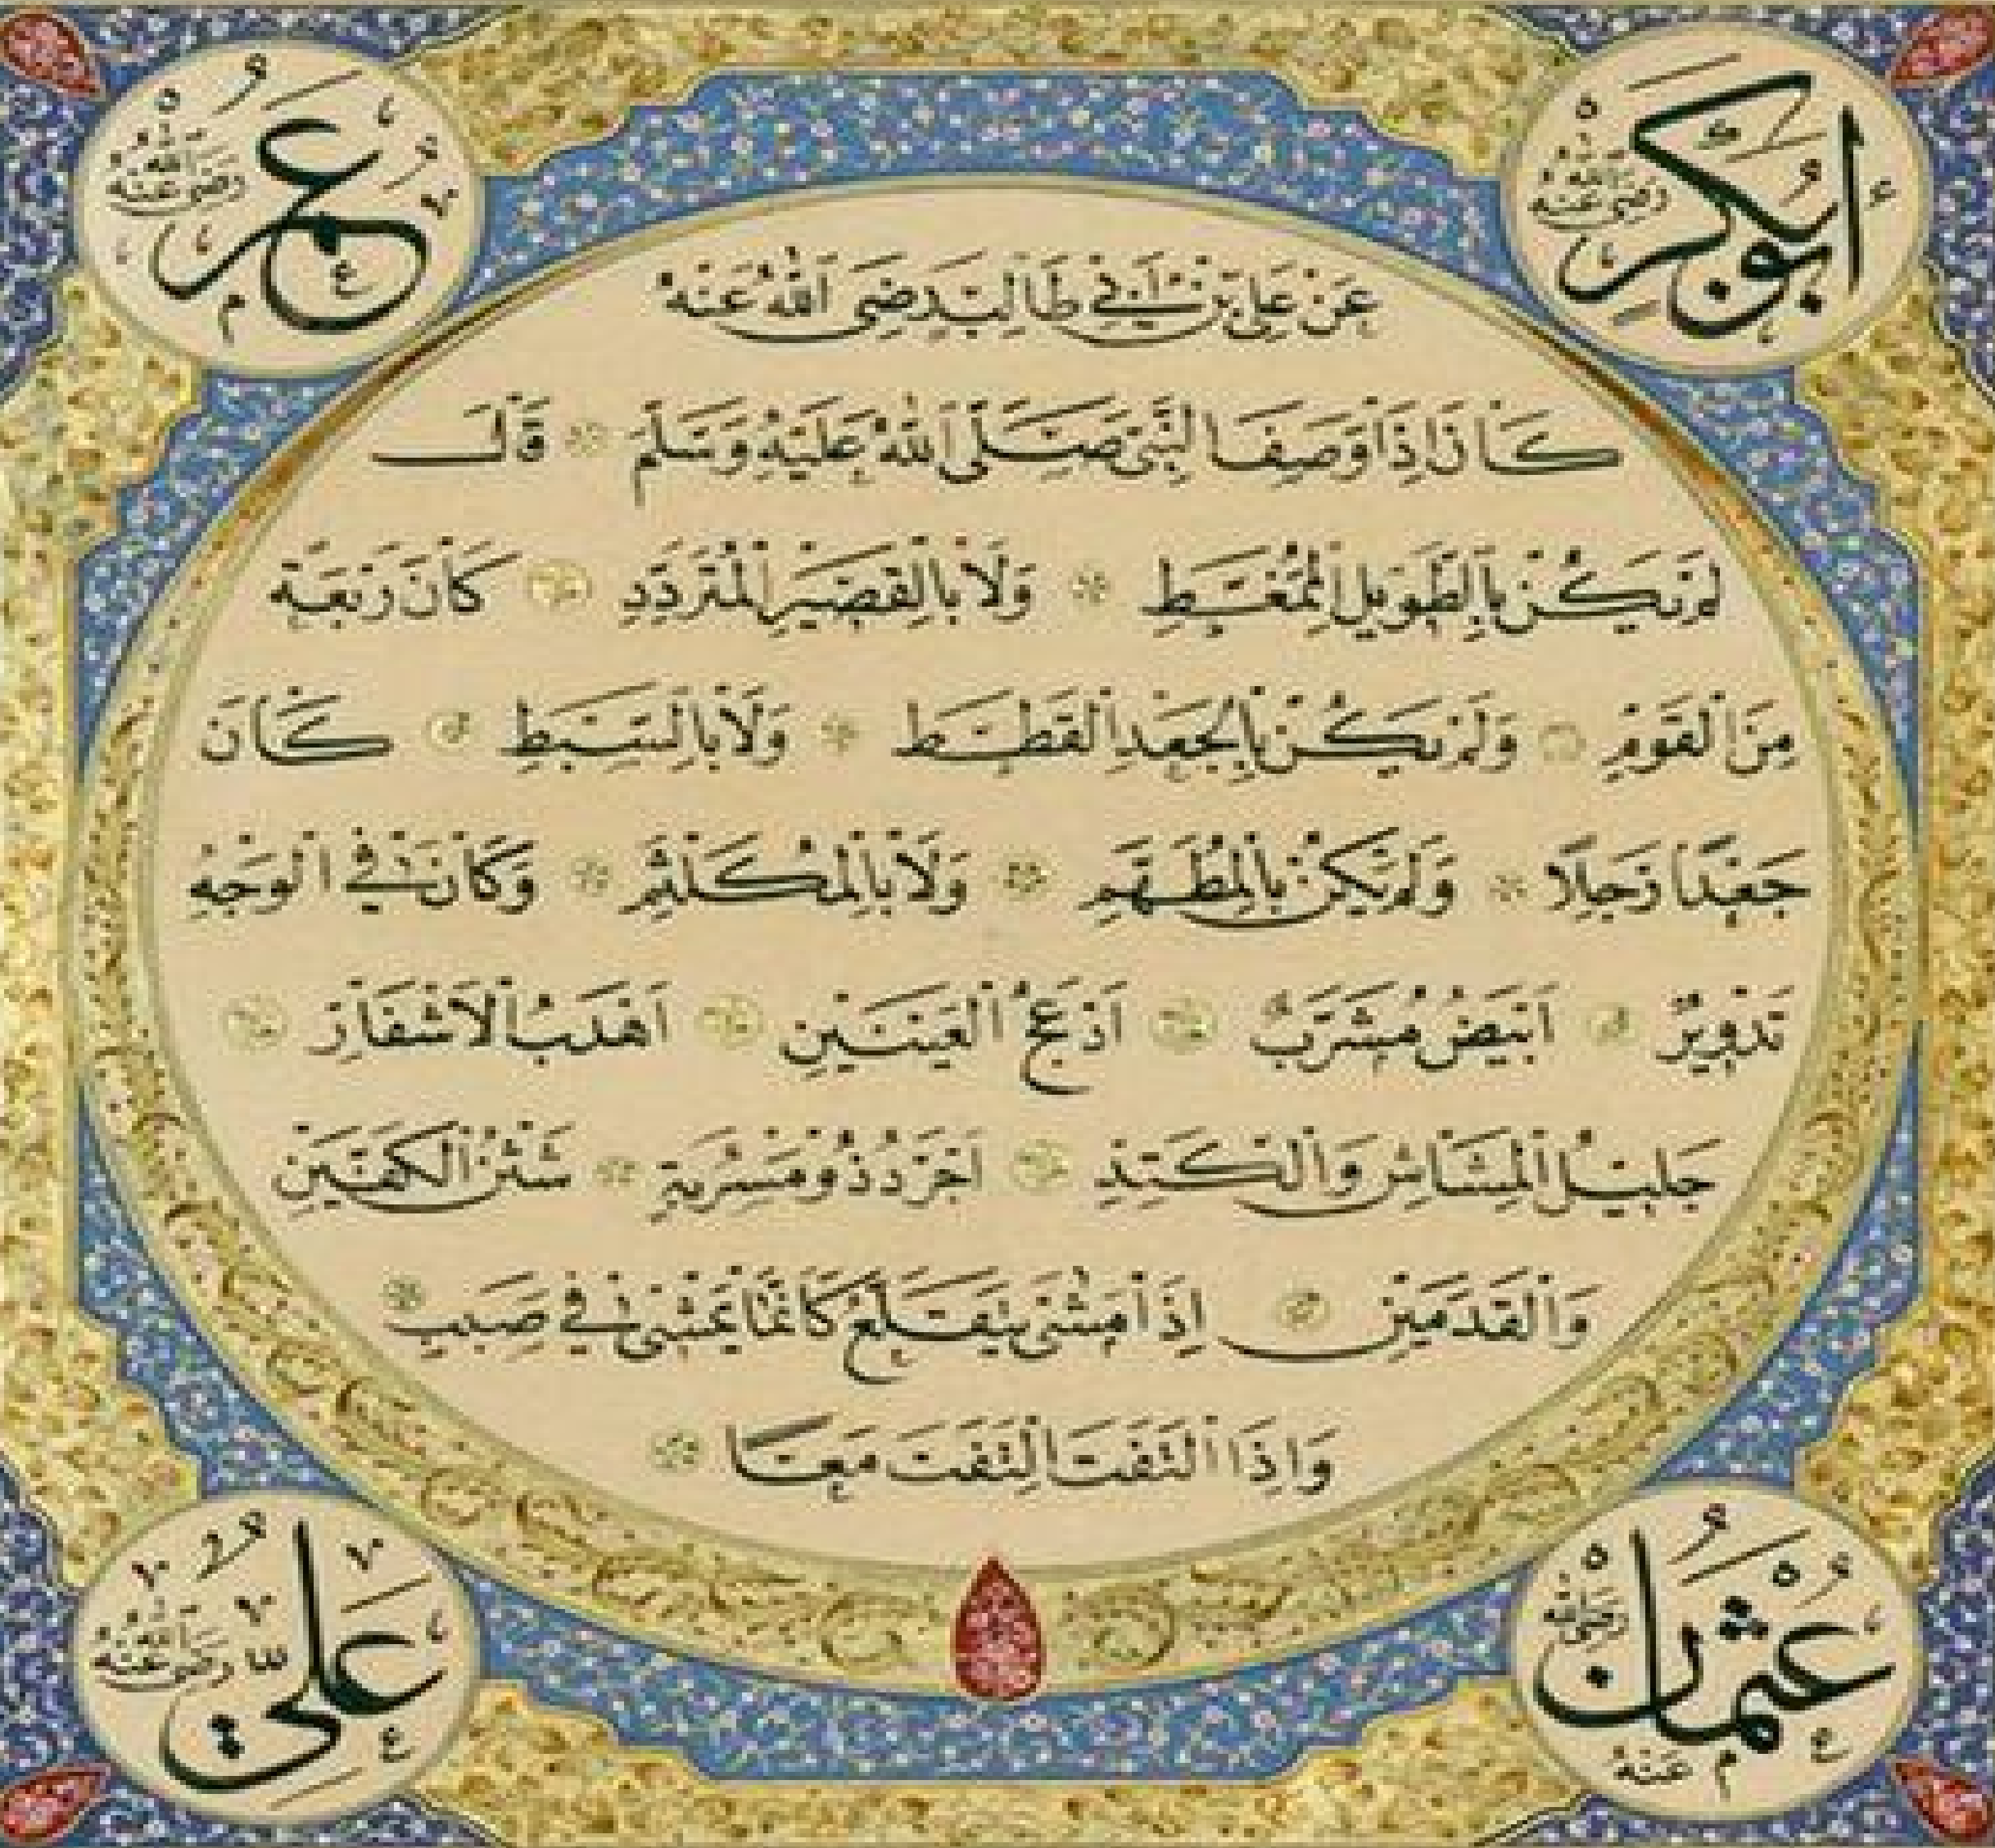 ابوبكر رضى الله عنه
عمر رضى الله عنه
عَنْ عَلِىِّ بْنِ اَبِى طَالِبٍ رَضِىَ اللّٰهُ عَنْهُ
كَانَ اِذَا وَصَفَ النَّبِىَّ صَلَّى اللّٰهُ عَلَيْهِ وَسَلَّمَ قَالَ
لَمْ يَكُنْ بِالطَّوِيلِ الْمُمَّغِطِ وَلَا بِالْقَصِيرِ الْمُتَرَدِّدِ كَانَ رَبْعَةً
مِنَ الْقَوْمِ وَلَمْ يَكُنْ بِالْجَعْدِ الْقَطَطِ وَلَا بِالسَّبِطِ كَانَ
جَعْدًا رَجِلًا وَلَمْ يَكُنْ بِالْمُطَهَّمِ وَلَا بِالْمُكَلْثَمِ وَكَانَ فِى الْوَجْهِ
تَدْوِيرٌ اَبْيَضُ مُشْرَبٌ اَدْعَجُ الْعَيْنَيْنِ اَهْدَبُ الْاَشْفَارِ
جَلِيلُ الْمُشَاشِ وَالْكَتَدِ اَجْرَدُ ذُو مَسْرُبَةٍ شَثْنُ الْكَفَّيْنِ
وَالْقَدَمَيْنِ اِذَا مَشَى يَتَقَلَّعُ كَاَنَّمَا يَمْشِى فِى صَبَبٍ
وَاِذَا الْتَفَتَ الْتَفَتَ مَعًا
عثمان رضى الله عنه
على رضى الله عنه